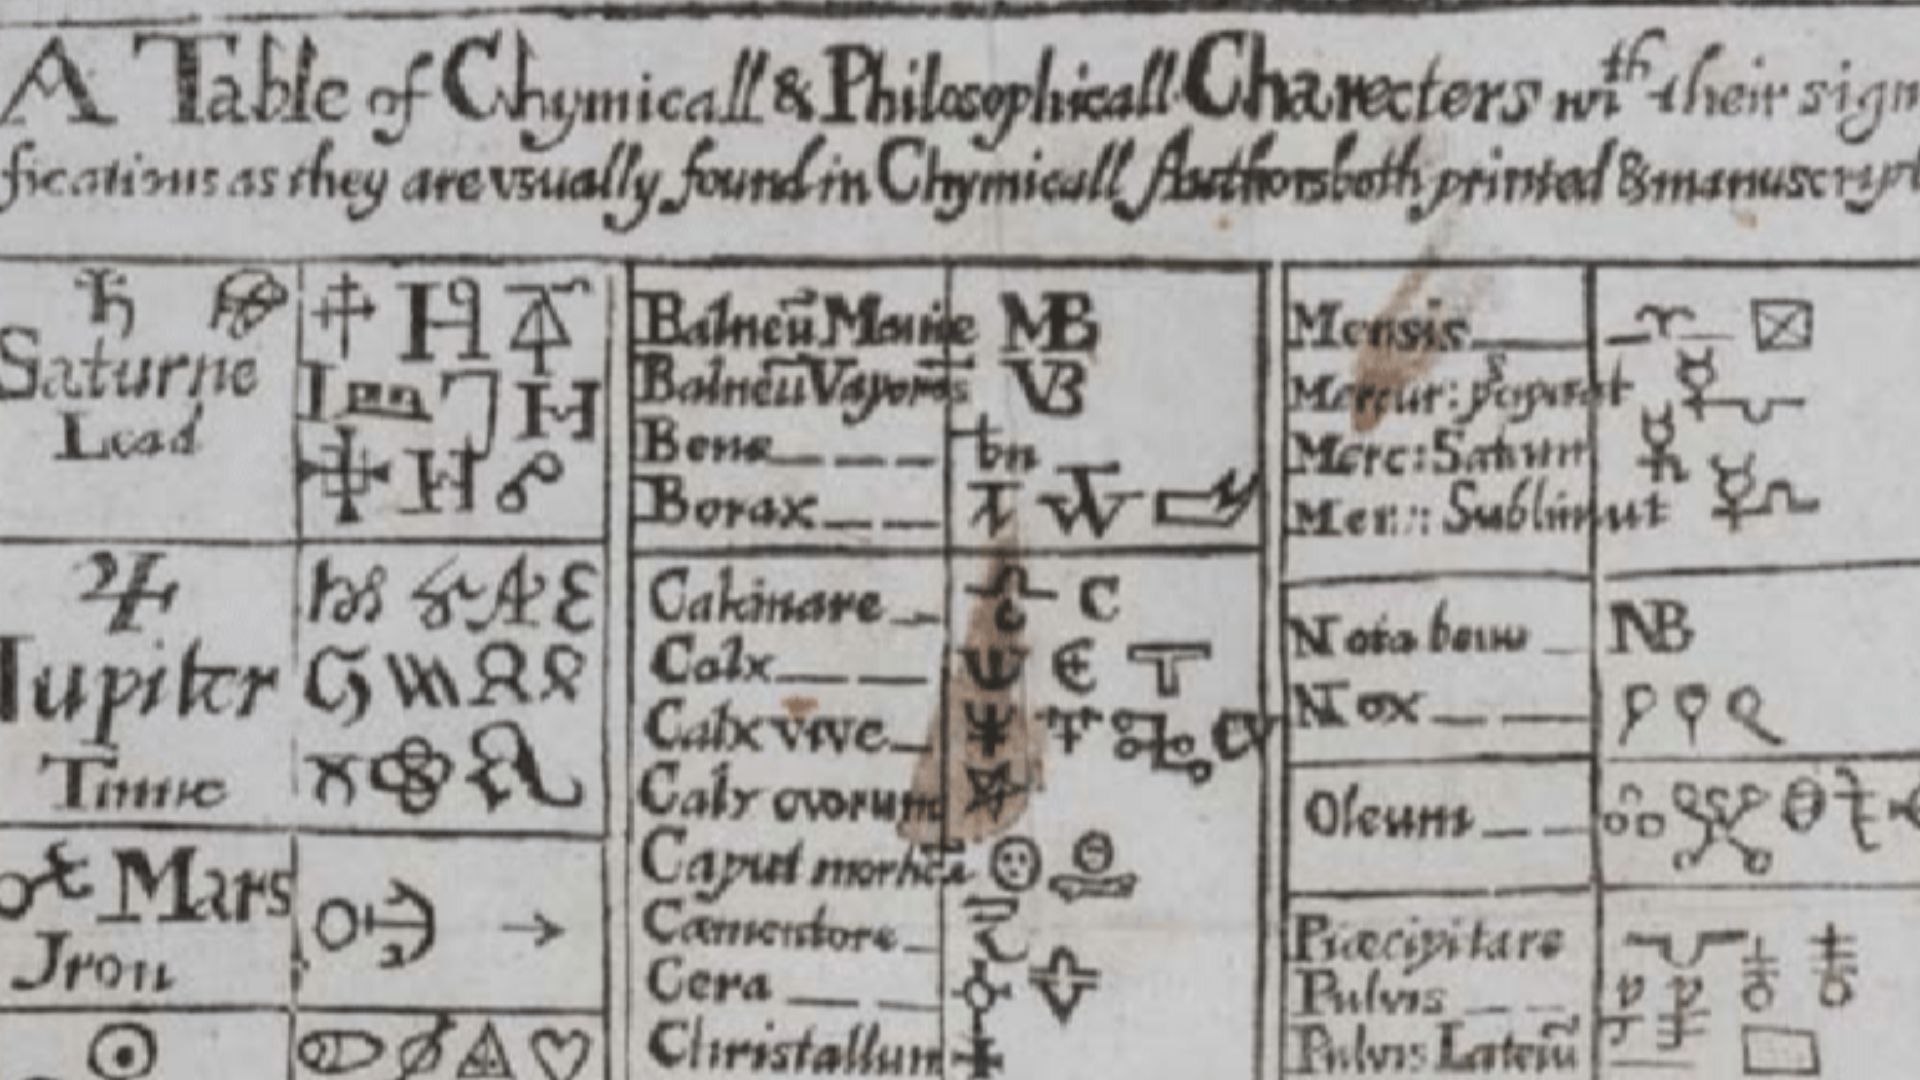 A Table of Chymicall & Philosophicall Charecters wth their signi
fications as they are vsually found in Chymicall Authors both printed & manuscript
Saturne
Lead
Iupiter
Tinne
Mars
Jron
Balneū Mariae MB
Balneū Vaporis VB
Bene bn
Borax
Calcinare C
Calx
Calx vive CV
Calx ovorum
Caput mortuū
Cæmentare
Cera
Christallum
Mensis
Mercur: Pcipitat
Merc: Saturn
Mer:: Sublimat
Nota bene NB
Nox
Oleum
Præcipitare
Pulvis
Pulvis Laterū